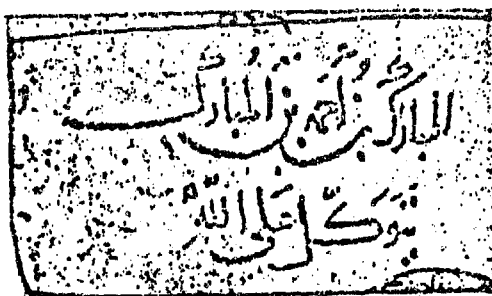 المباركُ بن أحمد بن المُبارك
تَوكّل على اللّه